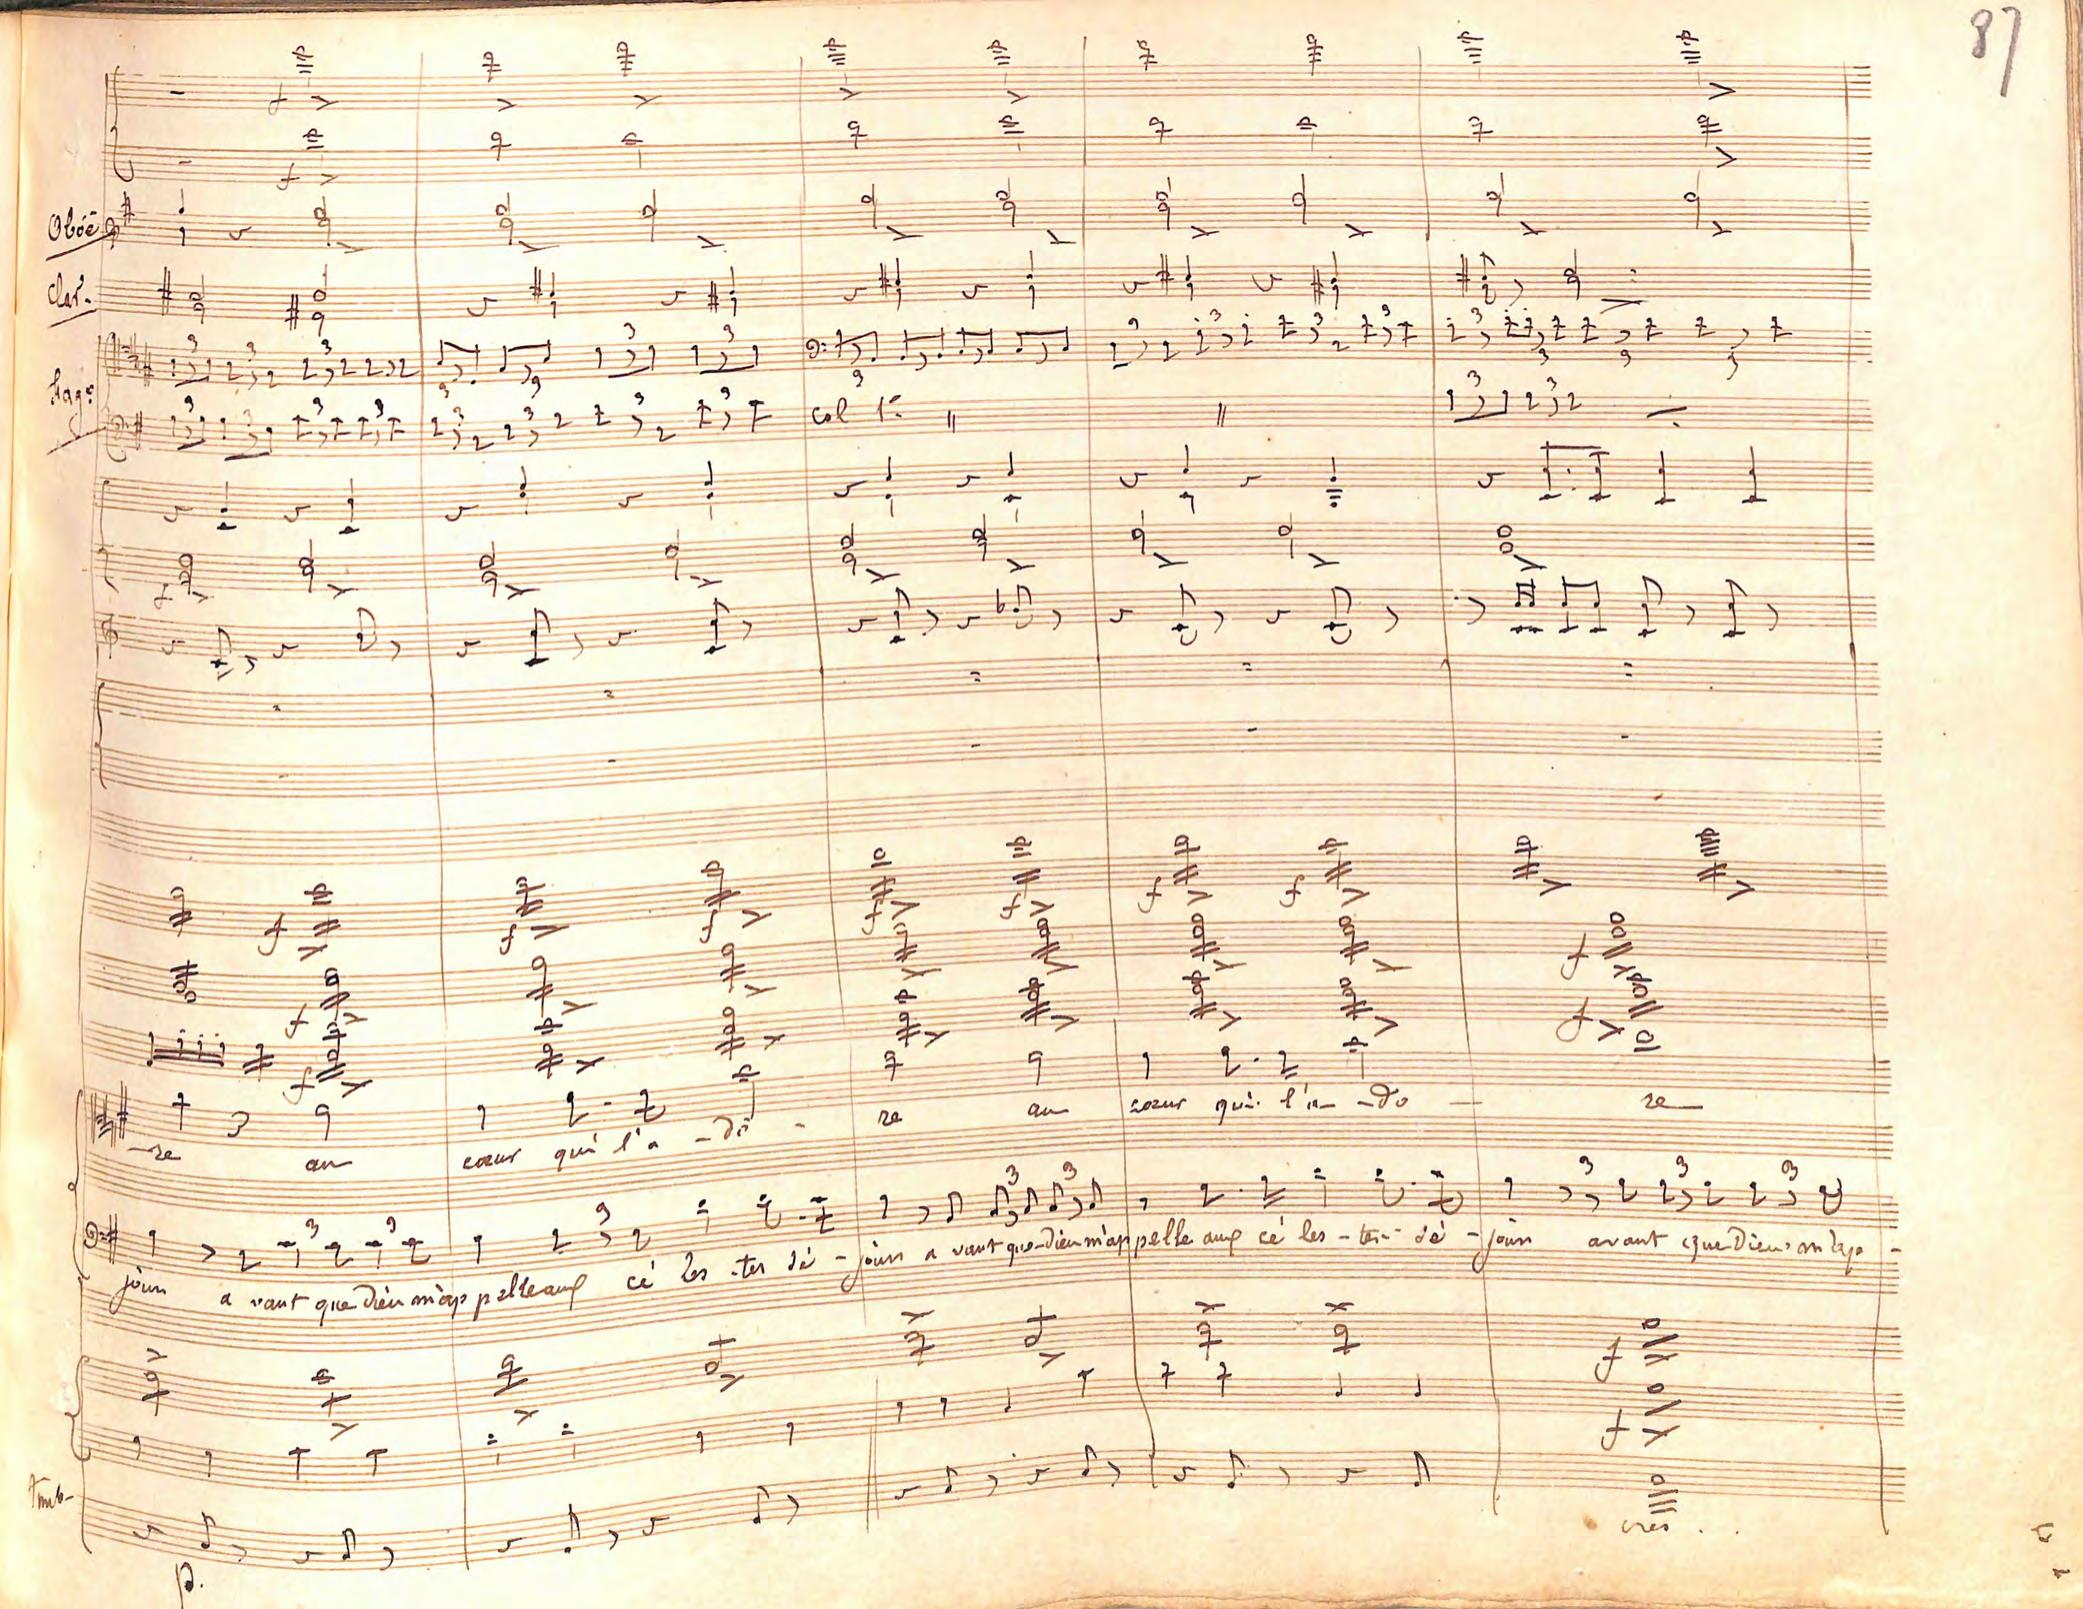 87
Oboë
Clar.
Fag.
col 1º
-re au cœur qui l'a-do-re au cœur qui l'a-do-re
jour avant que Dieu m'appelle aux cé les-tes sé-jour avant que Dieu m'appelle aux cé les-tes sé-jour avant que Dieu m'ap-
Timb-
p.
cres..